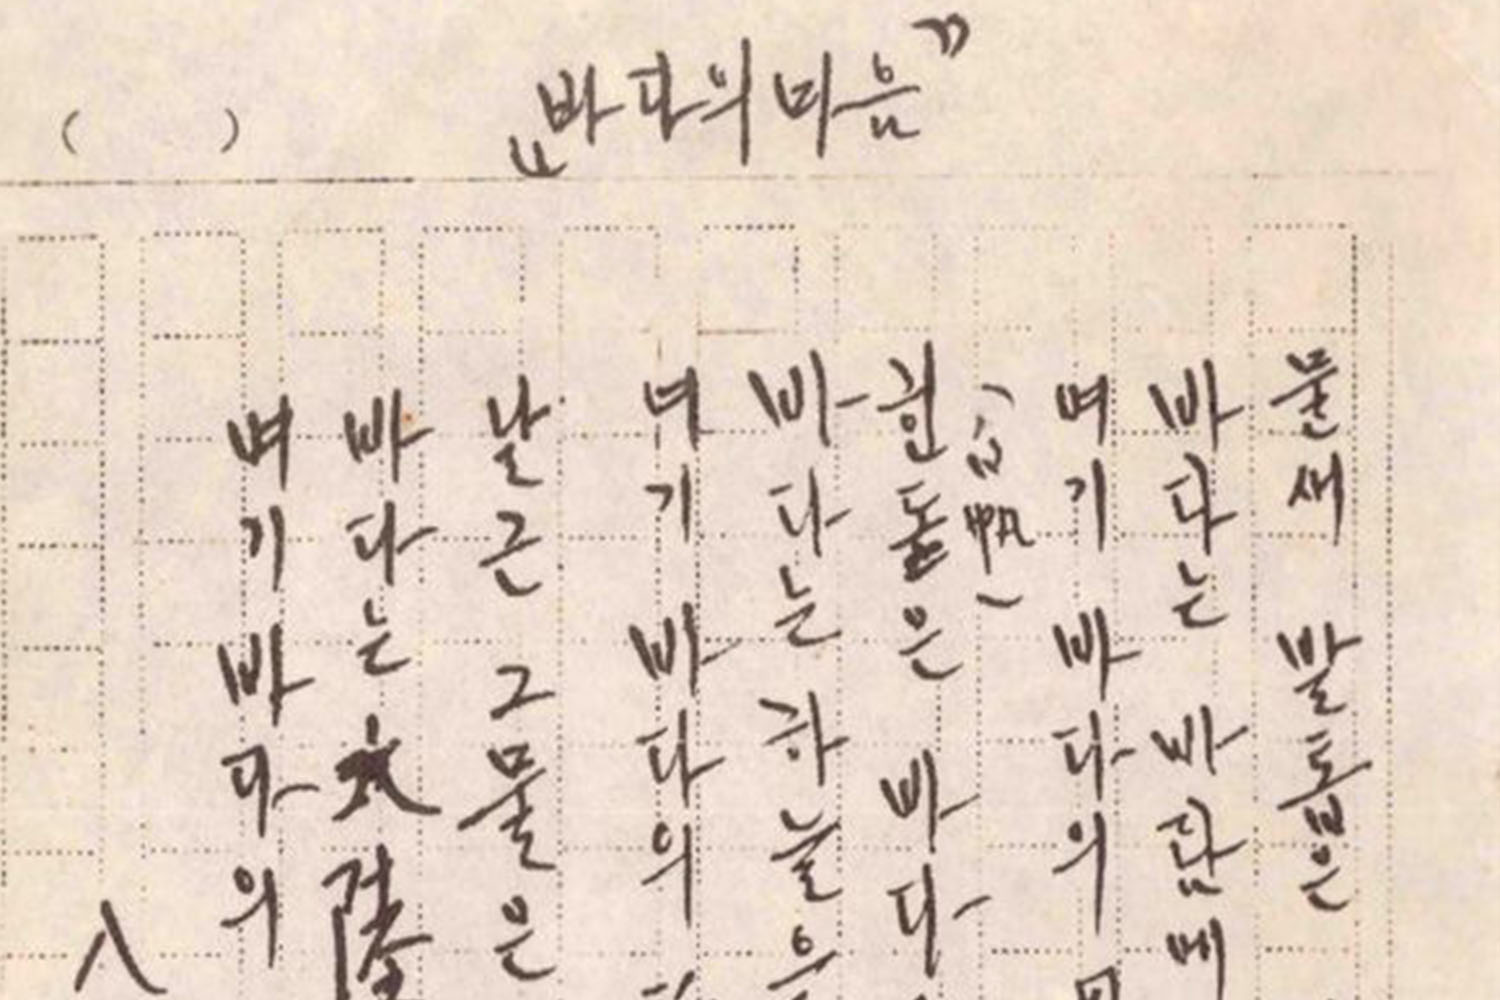 „바다의 마음”
( )
물새 발톱은
바다는 바람에
여기 바다의
(白帆)
힌돛은 바다
바다는 하늘을
여기 바다의
날근 그물은
바다는 大陸
여기 바다의